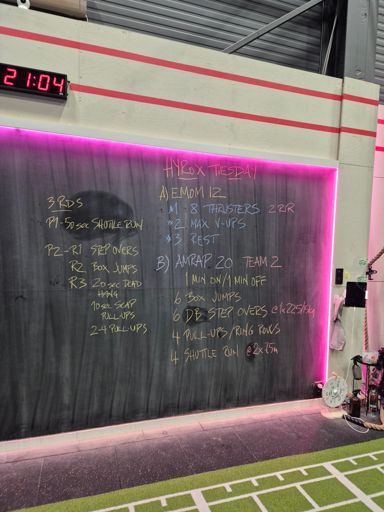 21:04
HYROX TUESDAY
3 RDS
P1-50 sec SHUTTLE RUN
P2-R1 STEP OVERS
R2 BOX JUMPS
R3 20 sec DEAD
HANG
10 sec SCAP
PULL-UPS
2-4 PULL-UPS
A) EMOM 12
1 8 THRUSTERS 2 RIR
2 MAX V-UPS
3 REST
B) AMRAP 20 TEAM 2
1 MIN ON/1 MIN OFF
6 BOX JUMPS
6 DB STEP OVERS
4 PULL-UPS/RING ROWS
4 SHUTTLE RUN @ 2x7.5m